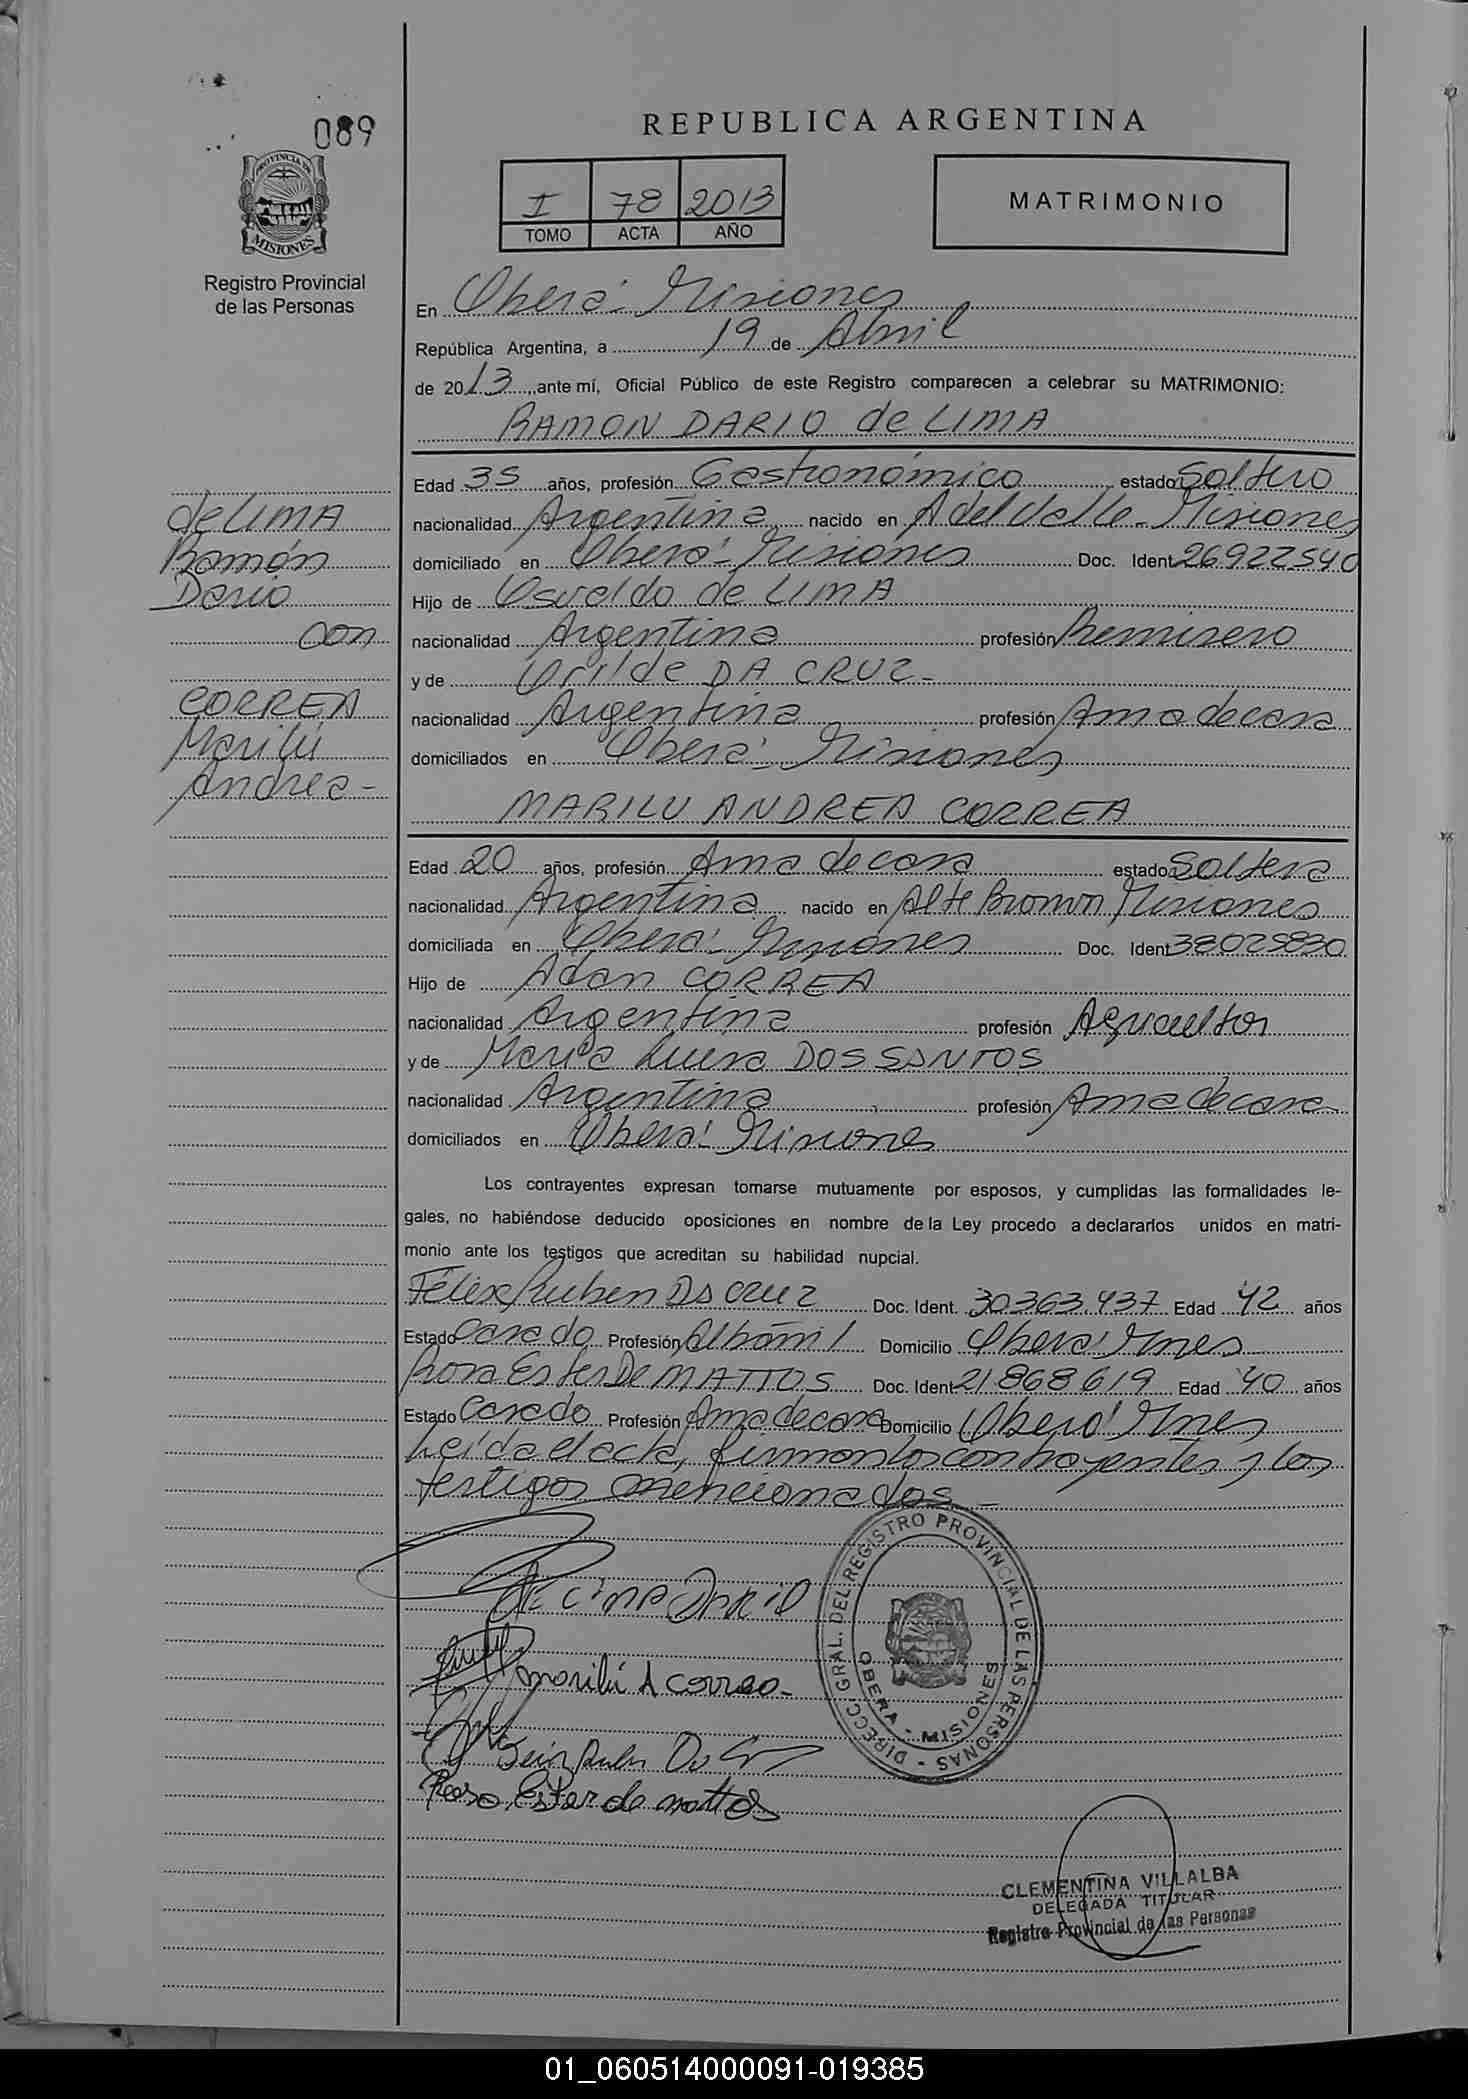 089
PROVINCIA DE
MISIONES
Registro Provincial
de las Personas
REPUBLICA ARGENTINA
I 78 2013
TOMO ACTA AÑO
MATRIMONIO
En Oberá - Misiones
República Argentina, a 19 de Abril
de 2013, ante mí, Oficial Público de este Registro comparecen a celebrar su MATRIMONIO:
RAMON DARIO de LIMA
Edad 35 años, profesión Gastronómico estado Soltero
de LIMA
nacionalidad Argentina nacido en A del Valle - Misiones
Ramón
domiciliado en Oberá - Misiones Doc. Ident 26922540
Dario
Hijo de Osvaldo de LIMA
con
nacionalidad Argentina profesión Remisero
y de Orilde DA CRUZ -
CORREA
nacionalidad Argentina profesión Ama de casa
Marilú
domiciliados en Oberá - Misiones
Andrea -
MARILU ANDREA CORREA
Edad 20 años, profesión Ama de casa estado Soltera
nacionalidad Argentina nacido en Alte Brown Misiones
domiciliada en Oberá - Misiones Doc. Ident 38025830
Hijo de Adan CORREA
nacionalidad Argentina profesión Agricultor
y de Maria Luisa DOS SANTOS
nacionalidad Argentina profesión Ama de casa
domiciliados en Oberá - Misiones
Los contrayentes expresan tomarse mutuamente por esposos, y cumplidas las formalidades le-
gales, no habiéndose deducido oposiciones en nombre de la Ley procedo a declararlos unidos en matri-
monio ante los testigos que acreditan su habilidad nupcial.
Félix Ruben DA CRUZ Doc. Ident. 30363.437 Edad 42 años
Estado Casado Profesión Albañil Domicilio Oberá Mnes
Rosa Ester De MATTOS Doc. Ident 21868619 Edad 40 años
Estado Casado Profesión Ama de casa Domicilio Oberá Mnes
Leída el acta, firman los contrayentes y los
testigos mencionados -
De Lima Dario
Marilú A Correa -
Rosa Ester de mattos
DIRECC. GRAL. DEL REGISTRO PROVINCIAL DE LAS PERSONAS -
OBERA - MISIONES
CLEMENTINA VILLALBA
DELEGADA TITULAR
Registro Provincial de las Personas
01_060514000091-019385